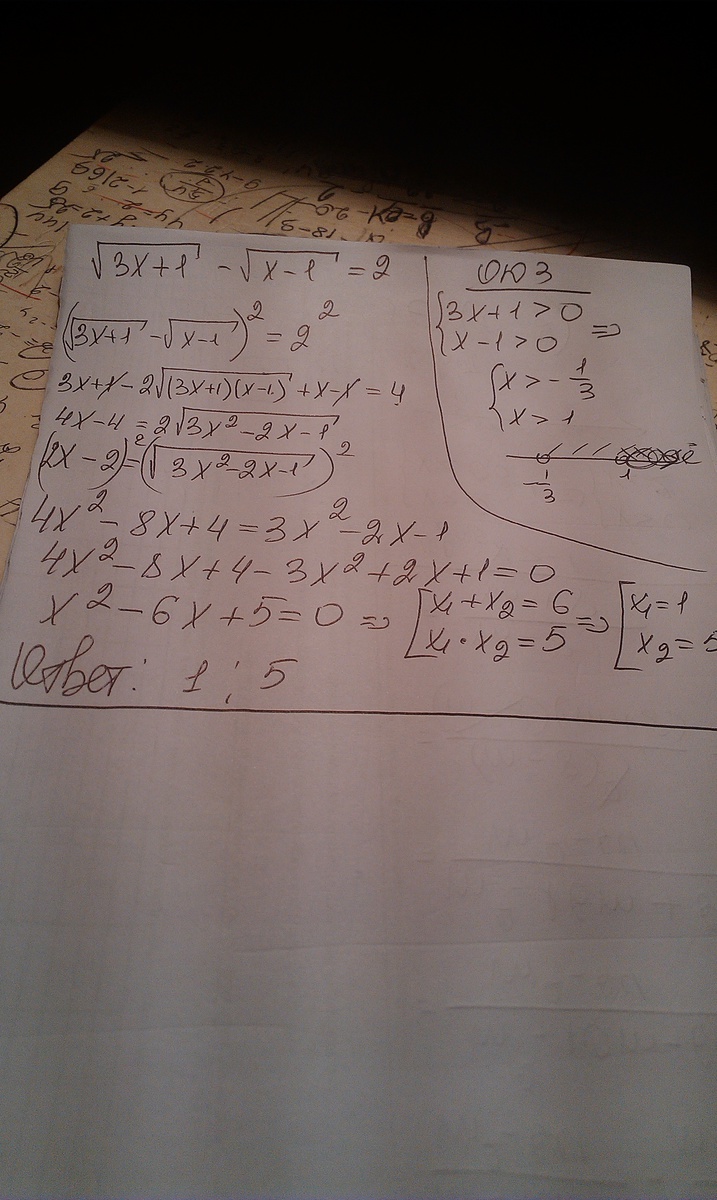 √3x+1 - √x-1 = 2
(√3x+1 - √x-1)² = 2²
3x+1-2√(3x+1)(x-1) + x-1 = 4
4x-4 = 2√3x²-2x-1
(2x-2)² = (√3x²-2x-1)²
4x²-8x+4 = 3x²-2x-1
4x²-8x+4-3x²+2x+1=0
x²-6x+5=0 => [x₁+x₂=6 => [x₁=1
x₁·x₂=5 x₂=5
Ответ: 1 ; 5
ОЮЗ
{3x+1>0
x-1>0 =>
{x>-1/3
x>1
-1/3 1